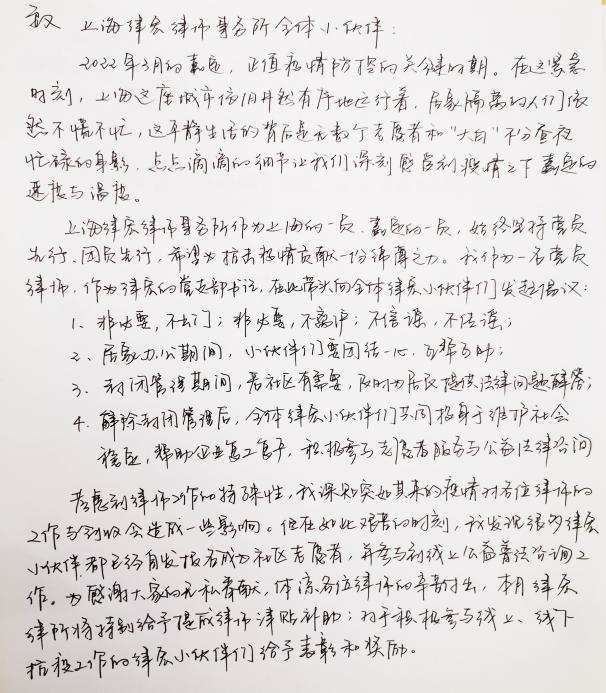 致 上海律宏律师事务所全体小伙伴:
2022年3月的嘉定,正值疫情防控的关键时期。在这紧急
时刻,上海这座城市依旧井然有序地运行着,居家隔离的人们依
然不慌不忙,这平静生活的背后是无数个志愿者和“大白”不分昼夜
忙碌的身影,点点滴滴的细节让我们深刻感受到疫情之下嘉定的
速度与温度。
上海律宏律师事务所作为上海的一员、嘉定的一员,始终坚持党员
先行、团员先行,希望为抗击疫情贡献一份绵薄之力。我作为一名党员
律师,作为律宏的党支部书记,在此带头向全体律宏小伙伴们发起倡议:
1、非必要,不出门;非必要,不离沪;不信谣,不传谣;
2、居家办公期间,小伙伴们要团结一心,互帮互助;
3、封闭管理期间,若社区有需要,及时为居民提供法律问题解答;
4、解除封闭管理后,全体律宏小伙伴们共同投身于维护社会
稳定,帮助企业复工复产,积极参与志愿者服务与公益法律咨询
考虑到律师工作的特殊性,我深知突如其来的疫情对各位律师的
工作与创收会造成一些影响。但在如此艰苦的时刻,我发现很多律宏
小伙伴都已经自发报名成为社区志愿者,并参与到线上公益普法咨询工
作。为感谢大家的无私奉献,体谅各位律师的辛勤付出,本月律宏
律所将特别给予提成律师津贴补助;对于积极参与线上、线下
抗疫工作的律宏小伙伴们给予表彰和奖励。